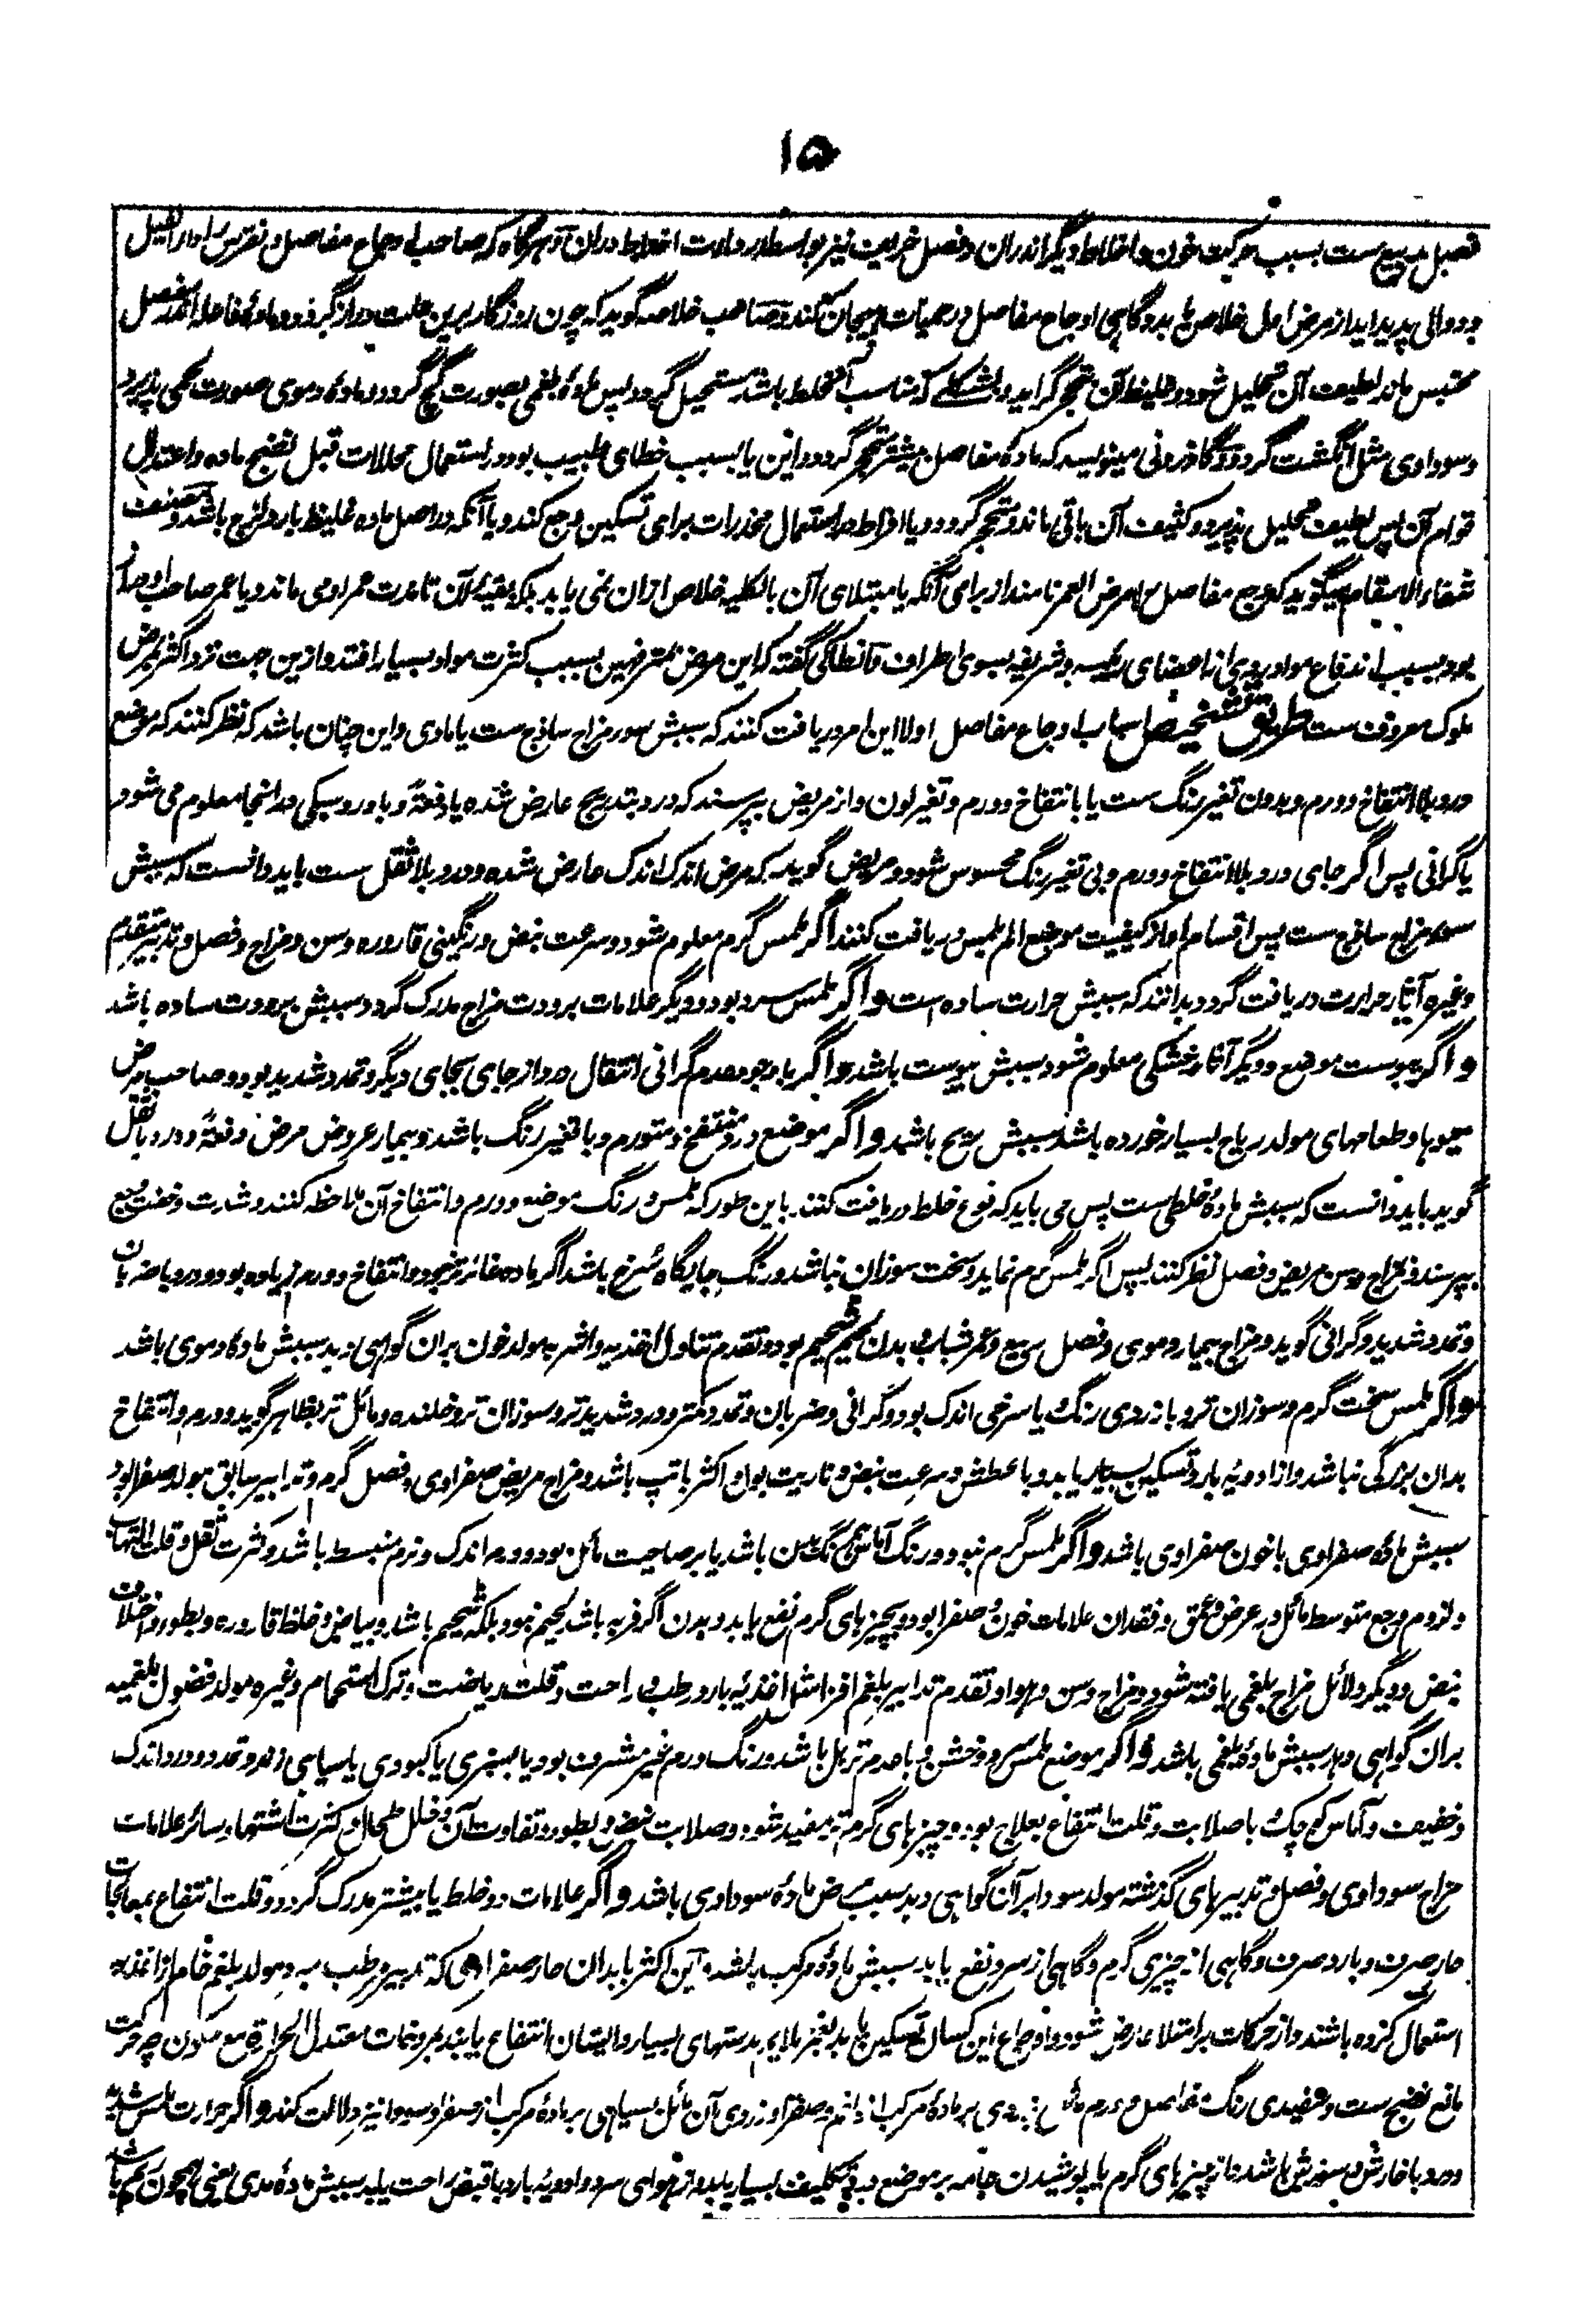 ۱۵
فصل ربیع ست بسبب حرکت خون و اخلاط دیگر اندران و فصل خریف نیز بواسطه ردائت اخلاط دران و هرگاه که صاحب اوجاع مفاصل و نقرس را داء الفیل
و دوالی پدید آید از مرض اصل خلاص یابد و گاهی اوجاع مفاصل در حمیات هیجان کند و صاحب خلاصه گوید که چون روزگار برین علت دراز گردد و ماده فاعله اندر مفصل
محتبس ماند لطیف آن تحلیل شود و غلیظ آن تحجر گراید و بشکلے که مناسب آن خلط باشد مستحیل گردد پس ماده بلغمی بصورت گچ گردد و ماده دموی صورت لحمی پذیرد
و سوداوی مثل انگشت گردد و گاذرونی مینویسد که ماده مفاصل بیشتر متحجر گردد و این یا بسبب خطای طبیب بود در استعمال محللات قبل نضج ماده و اعتدال
قوام آن پس لطیف تحلیل پذیرد و کثیف آن باقی ماند و متحجر گردد و یا افراط در استعمال مخدرات برای تسکین وجع کند و یا آنکه در اصل ماده غلیظ بارد لزج باشد و مصنف
شفاء الاسقام میگوید که وجع مفاصل را مرض العمر نامند از برای آنکه یا مبتلای آن بالکلیه خلاص ازان نمی یابد بلکه بقیه آن تا مدت عمر او می ماند و یا عمر صاحب او دراز
بود بسبب اندفاع مواد ردی از اعضای رئیسه و شریفه بسوی اطراف و انطاکی گفته که این مرض مترفهین بسبب کثرت مواد بسیار افتد و ازین جهت نزد اکثر بمرض
ملوک معروف ست طریق تشخیص اسباب اوجاع مفاصل اولا این امر دریافت کنند که سببش سوء مزاج ساذج ست یا مادی و این چنان باشد که نظر کنند که موضع
درد بلا انتفاخ و ورم و بدون تغیر رنگ ست یا با انتفاخ و ورم و تغیر لون و از مریض بپرسند که درد بتدریج عارض شده یا دفعةً و با درد سبکی در آنجا معلوم می شود
یا گرانی پس اگر جای درد بلا انتفاخ و ورم و بی تغیر رنگ محسوس شود و مریض گوید که مرض اندک اندک عارض شده و درد بلا ثقل ست باید دانست که سببش
سوء مزاج ساذج ست پس اقسام او از کیفیت موضع الم بلمس دریافت کنند اگر ملمس گرم معلوم شود و سرعت نبض و رنگینی قاروره و سن و مزاج و فصل و تدبیر متقدم
و غیره آثار حرارت دریافت گردد بدانند که سببش حرارت ساده است و اگر ملمس سرد بود و دیگر علامات برودت مزاج مدرک گردد سببش برودت ساده باشد
و اگر یبوست موضع و دیگر آثار خشکی معلوم شود سببش یبوست باشد و اگر باوجود عدم گرانی انتقال درد از جای بجای دیگر و تمدد شدید بود و صاحب مرض
میوها و طعامهای مولد ریاح بسیار خورده باشد سببش ریح باشد و اگر موضع درد منتفخ و متورم و با تغیر رنگ باشد و بیمار عروض مرض دفعةً و درد با ثقل
گوید باید دانست که سببش ماده خلطی ست پس می باید که نوع خلط دریافت کنند باین طور که ملمس و رنگ موضع و ورم و انتفاخ آن ملاحظه کنند و شدت و خفت وجع
بپرسند و بمزاج و سن مریض و فصل نظر کنند پس اگر ملمس گرم نماید و سخت سوزان نباشد و رنگ جایگاه سرخ باشد اگر ماده غائر نبود و انتفاخ و ورم زیاده بود و درد با ضربان
و تمدد شدید و گرانی گوید و مزاج بیمار دموی و فصل ربیع و عمر شباب و بدن لحیم شحیم بود و تقدم تناول اغذیه و اشربه مولد خون بران گواهی دهد سببش ماده دموی باشد
و اگر ملمس سخت گرم و سوزان تر و با زردی رنگ یا سرخی اندک بود و گرانی و ضربان و تمدد کمتر و درد شدیدتر و سوزان تر و خلنده و مائل تر بظاهر گوید و ورم و انتفاخ
بدان بزرگی نباشد و از ادویه بارد تسکین بسیار یابد و با عطش و سرعت نبض و ناریت بول و اکثر با تپ باشد و مزاج مریض صفراوی و فصل گرم و تدابیر سابق مولد صفرا بود
سببش ماده صفراوی یا خون صفراوی باشد و اگر ملمس گرم نبود و رنگ آماس همرنگ تن باشد یا برصاصیت مائل بود و ورم اندک و نرم منبسط باشد و کثرت ثقل و قلت التهاب
و لزوم وجع متوسط مائل در عرض و عمق و فقدان علامات خون و صفرا بود و بچیزهای گرم نفع یابد و بدن اگر فربه باشد لحیم نبود بلکه شحیم باشد و بیاض و غلظ قاروره و بطوء و اختلاف
نبض و دیگر دلائل مزاج بلغمی یافته شود و مزاج و سن و هوا و تقدم تدابیر بلغم افزا مثل اغذیه بارد رطب و راحت و قلت ریاضت و ترک استحمام و غیره مولد فضول بلغمیه
بران گواهی دهد سببش ماده بلغمی باشد و اگر موضع ملمس سرد و خشن و با عدم ترهل باشد و رنگ ورم غیر مشرق بود یا بسبزی یا کبودی یا سیاهی زند و تمدد و درد اندک
و خفیف و آماس کوچک با صلابت و قلت انتفاع بعلاج بود و چیزهای گرم تر مفید شود و صلابت نبض و بطوء و تفاوت آن و خلل طحال و کثرت اشتها و سائر علامات
مزاج سوداوی و فصل و تدبیرهای گذشته مولد سودا برآن گواهی دهد سبب مرض ماده سوداوی باشد و اگر علامات دو خلط یا بیشتر مدرک گردد و قلت انتفاع بمعالجات
حار صرف و بارد صرف و گاهی از چیزی گرم و گاهی از سرد نفع یابد سببش ماده مرکب باشد و این اکثر بابدان حار صفراوی که تدبیر مرطب مولد بلغم خام از اغذیه
استعمال کرده باشند و از حرکات بر امتلا عارض شود و اوجاع این کسان تسکین یابد بغمز ملایم بدستهای بسیار و ایشان انتفاع یابند بمروخات معتدل الحرارة مع سکون چه حرکت
مانع نضج ست و سفیدی رنگ مفاصل و ورم مائل بزردی بر ماده مرکب از بلغم و صفرا و زردی آن مائل بسیاهی بر ماده مرکب از صفرا و سودا نیز دلالت کند و اگر حرارت ملمس شدید
و درد با خارش و سوزش باشد و از چیزهای گرم یا پوشیدن جامه بر موضع درد تکلیف بسیار یابد و از هوای سرد و ادویه بارد با قبض راحت یابد سببش ماده مدی